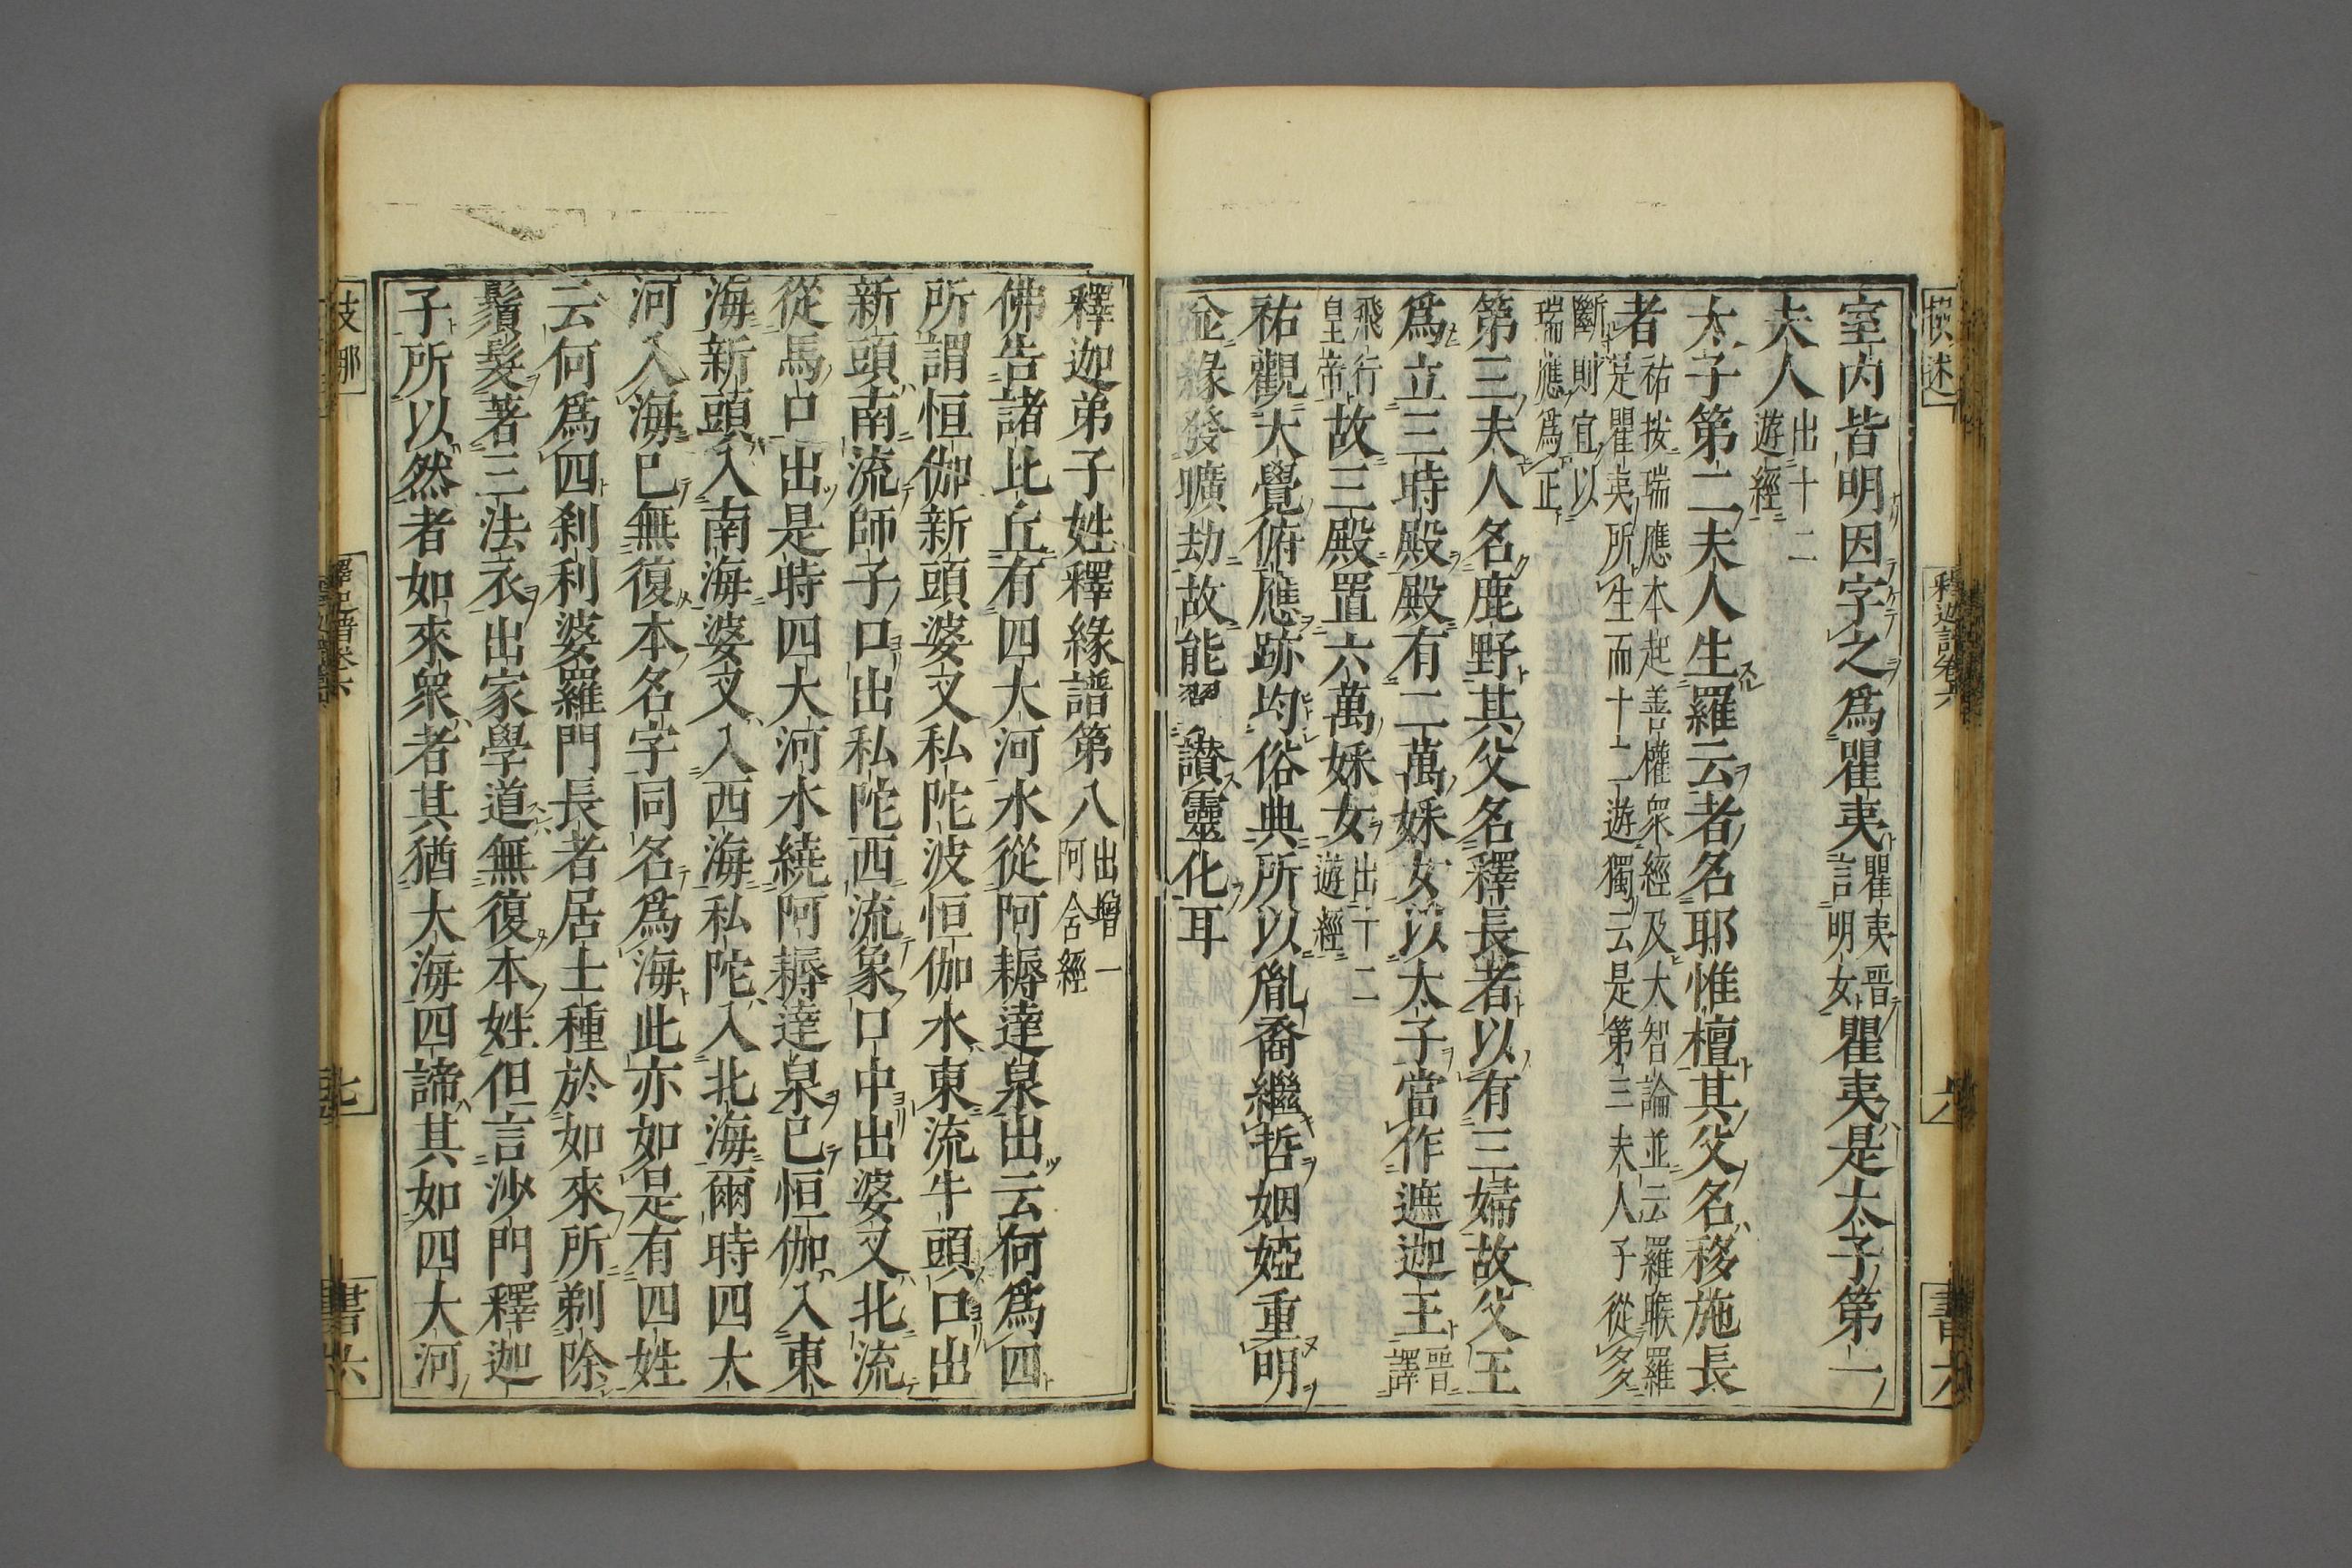 室内皆明因字之爲瞿夷瞿夷晋言明女瞿夷是太子第一
夫人出十二遊經
太子第二夫人生羅云者名耶惟檀其父名移施長
者祐按瑞應本起善權衆經及大智論並云羅睺羅是瞿夷所生而十二遊獨云是第三夫人子從多
斷則宜以瑞應爲正
第三夫人名鹿野其父名釋長者以有三婦故父王
爲立三時殿殿有二萬婇女以太子當作遮迦王晋譯
飛行皇帝故三殿置六萬婇女出十二遊經
祐觀大覺俯應跡均俗典所以胤裔繼哲姻婭重明
並緣發曠劫故能翼讃靈化耳
釋迦弟子姓釋緣譜第八出增一阿含經
佛告諸比丘有四大河水從阿耨達泉出云何爲四
所謂恒伽新頭婆叉私陀彼恒伽水東流牛頭口出
新頭南流師子口出私陀西流象口中出婆叉北流
從馬口出是時四大河水繞阿耨達泉已恒伽入東
海新頭入南海婆叉入西海私陀入北海爾時四大
河入海已無復本名字同名爲海此亦如是有四姓
云何爲四刹利婆羅門長者居士種於如來所剃除
鬚髮著三法衣出家學道無復本姓但言沙門釋迦
子所以然者如來衆者其猶大海四諦其如四大河
書六